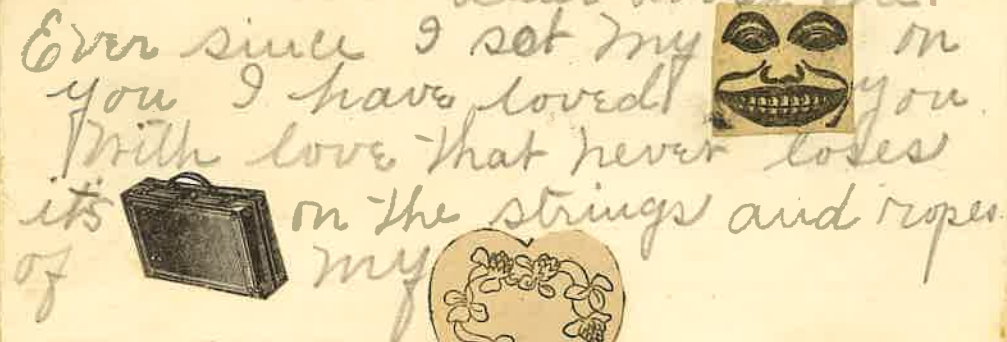 Ever since I set my on
you I have loved you.
With love that never loses
it's on the strings and ropes
of my